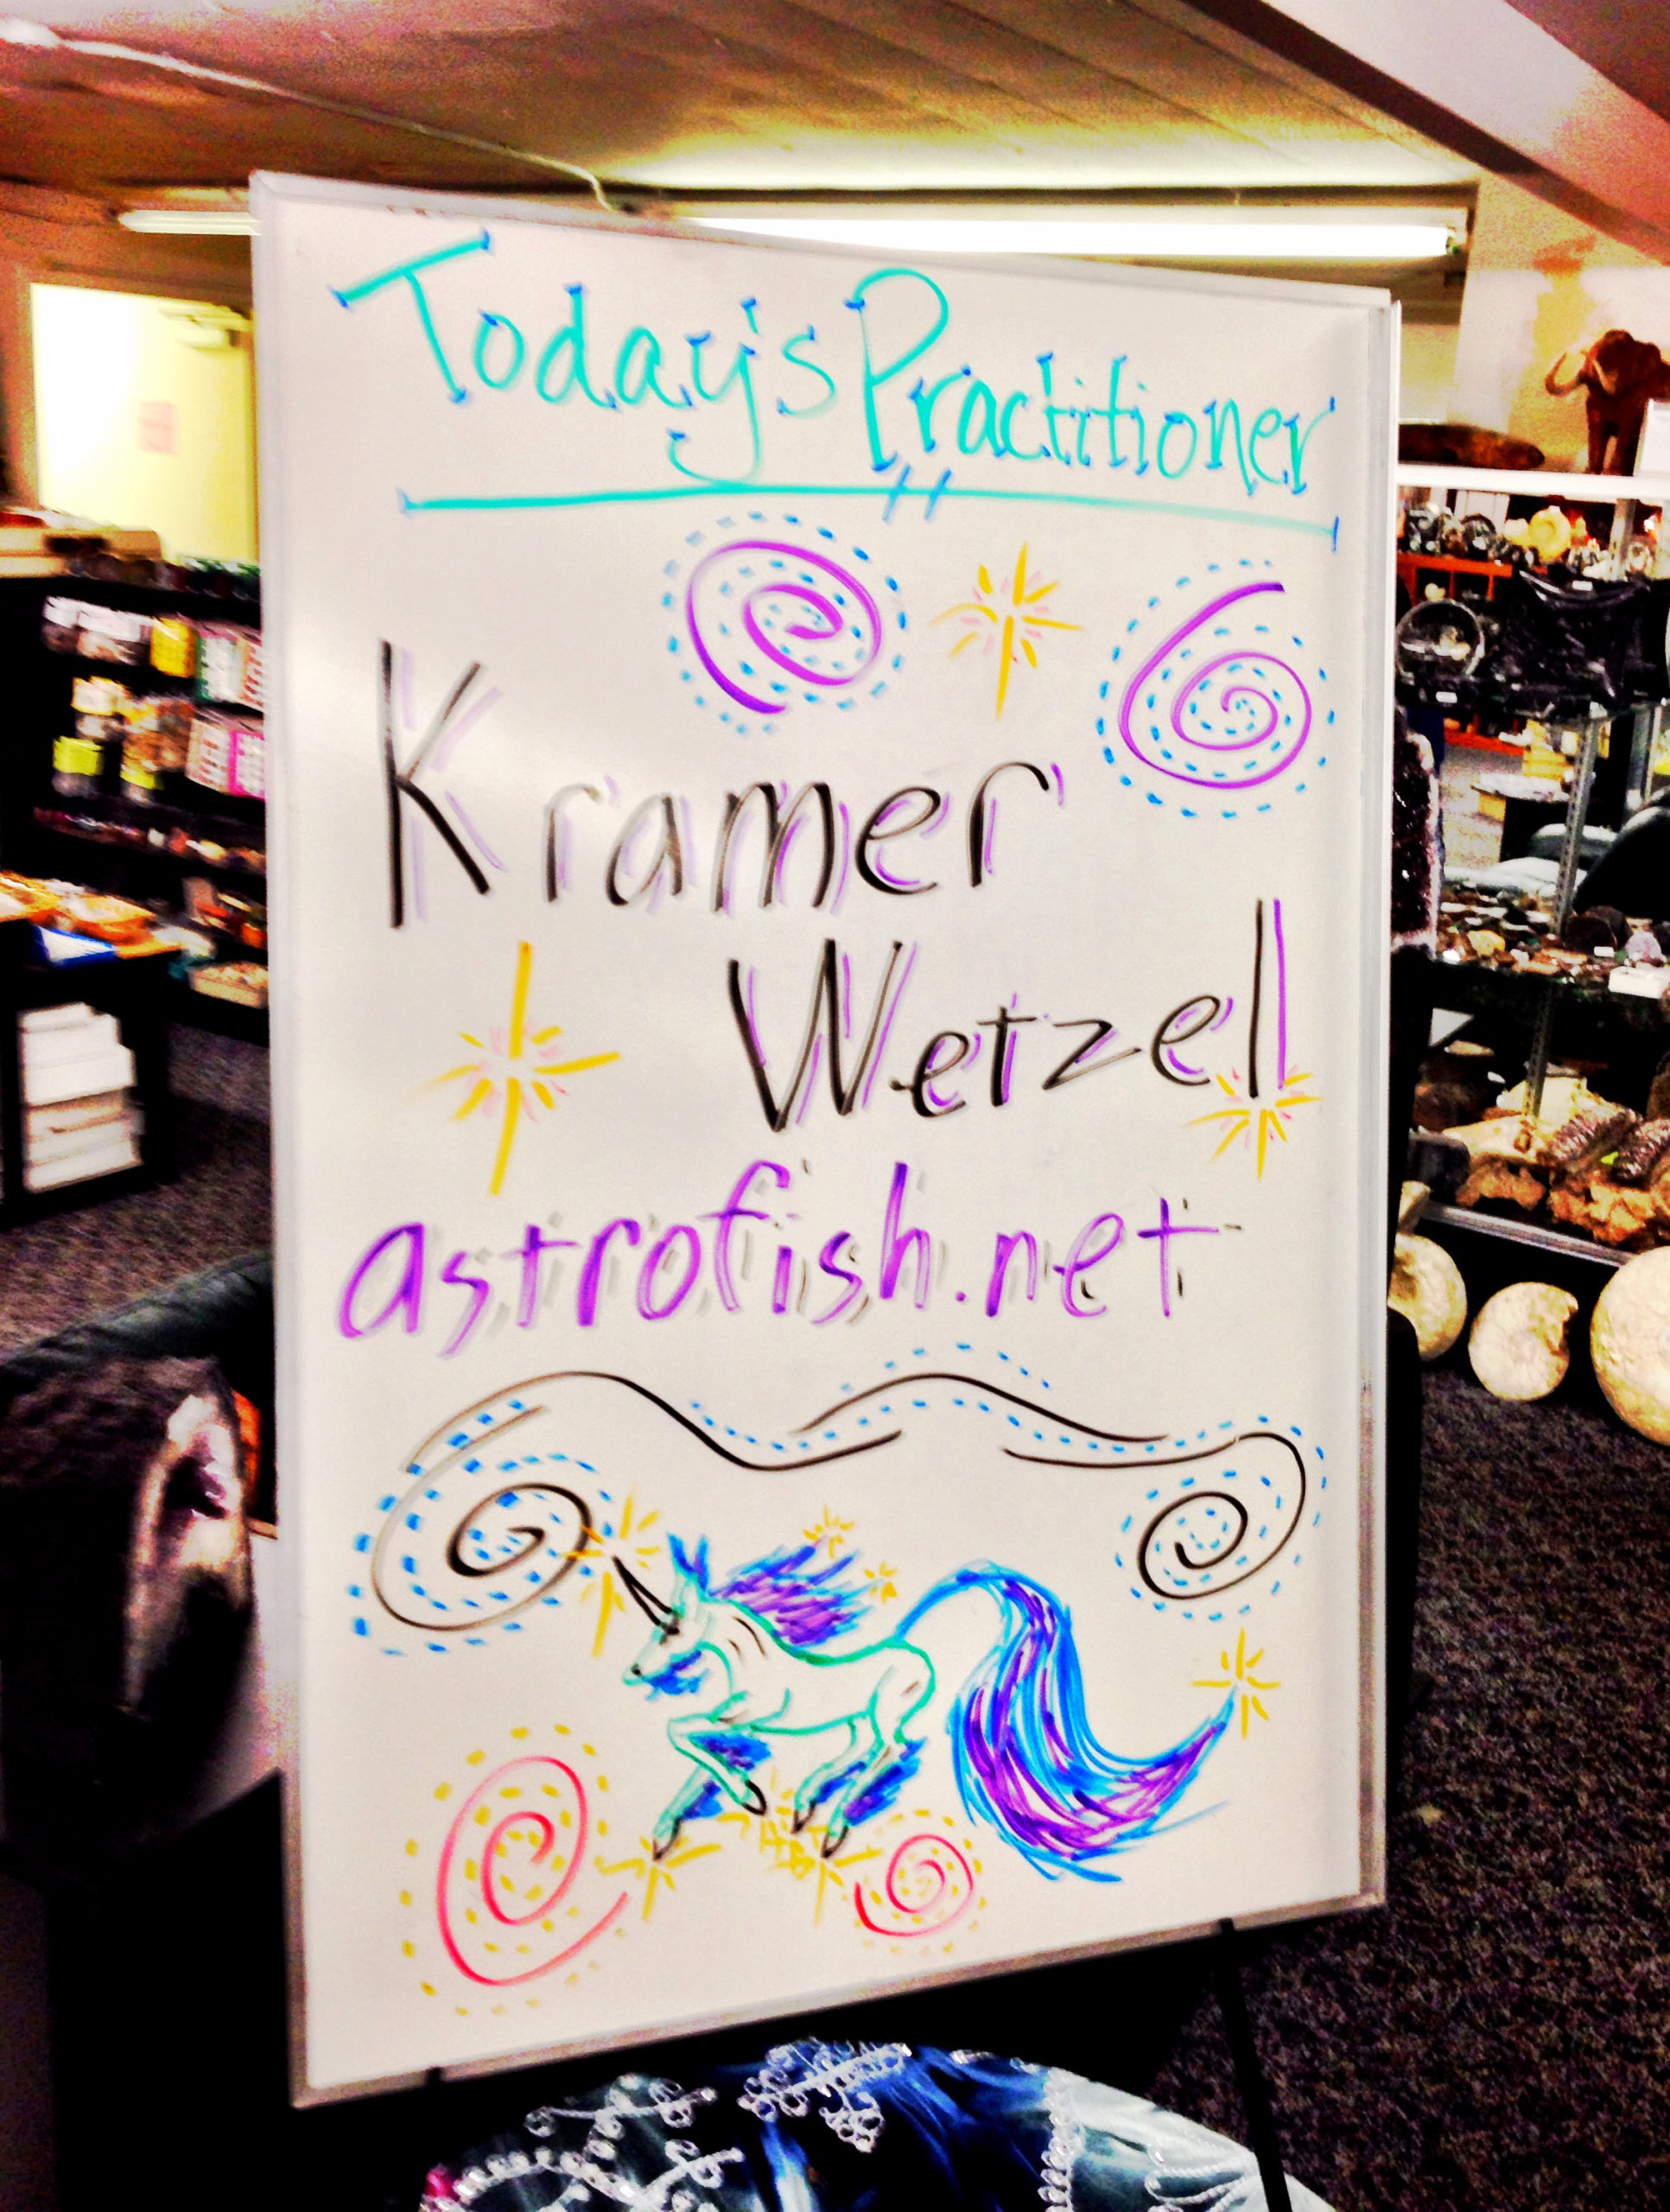 Today's Practitioner
Kramer
Wetzel
astrofish.net